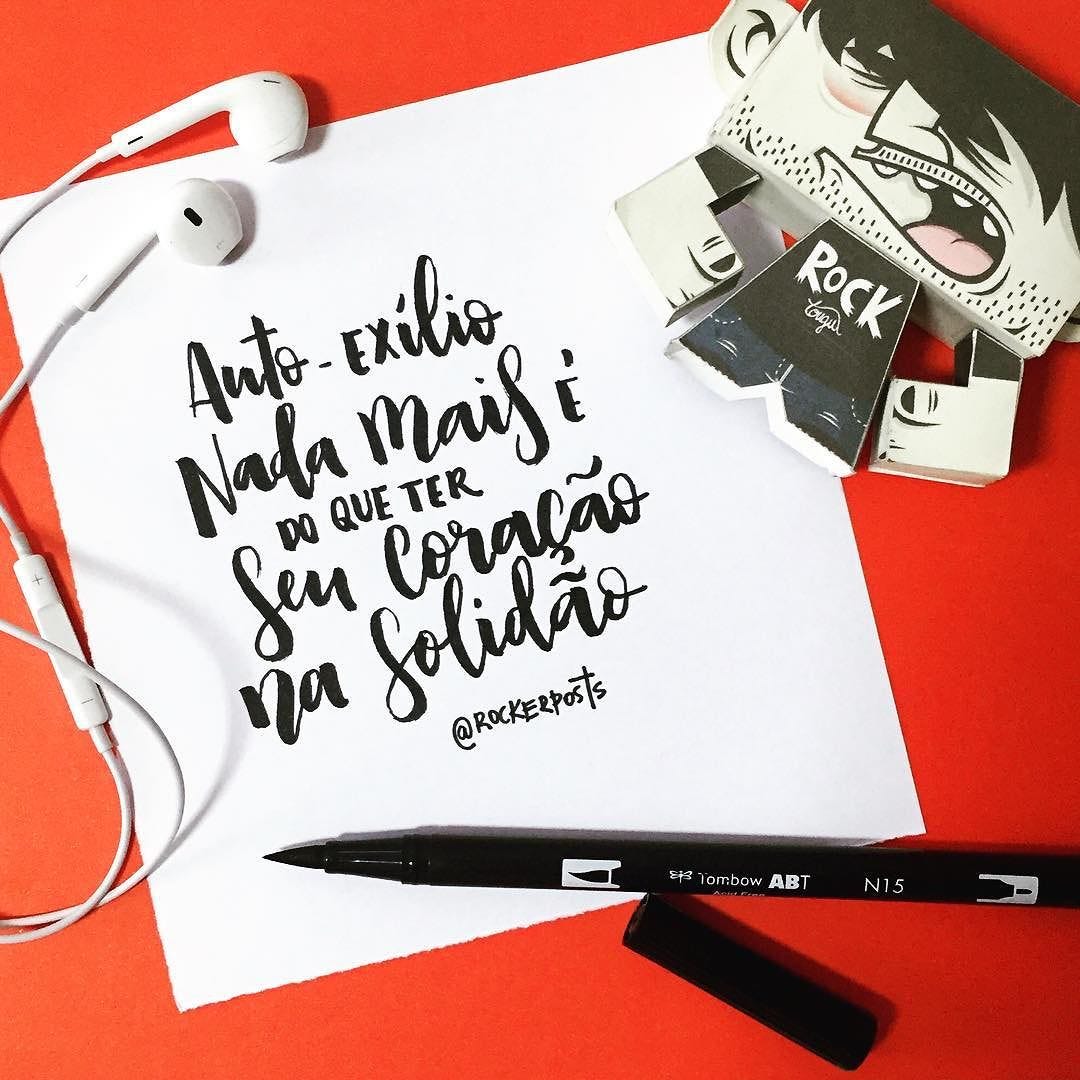 Auto-EXÍLIO
Nada Mais É
DO QUE TER
Seu Coração
na Solidão
@ROCKERPOSTS
ROCK
Tougui
Tombow ABT N15
Acid Free